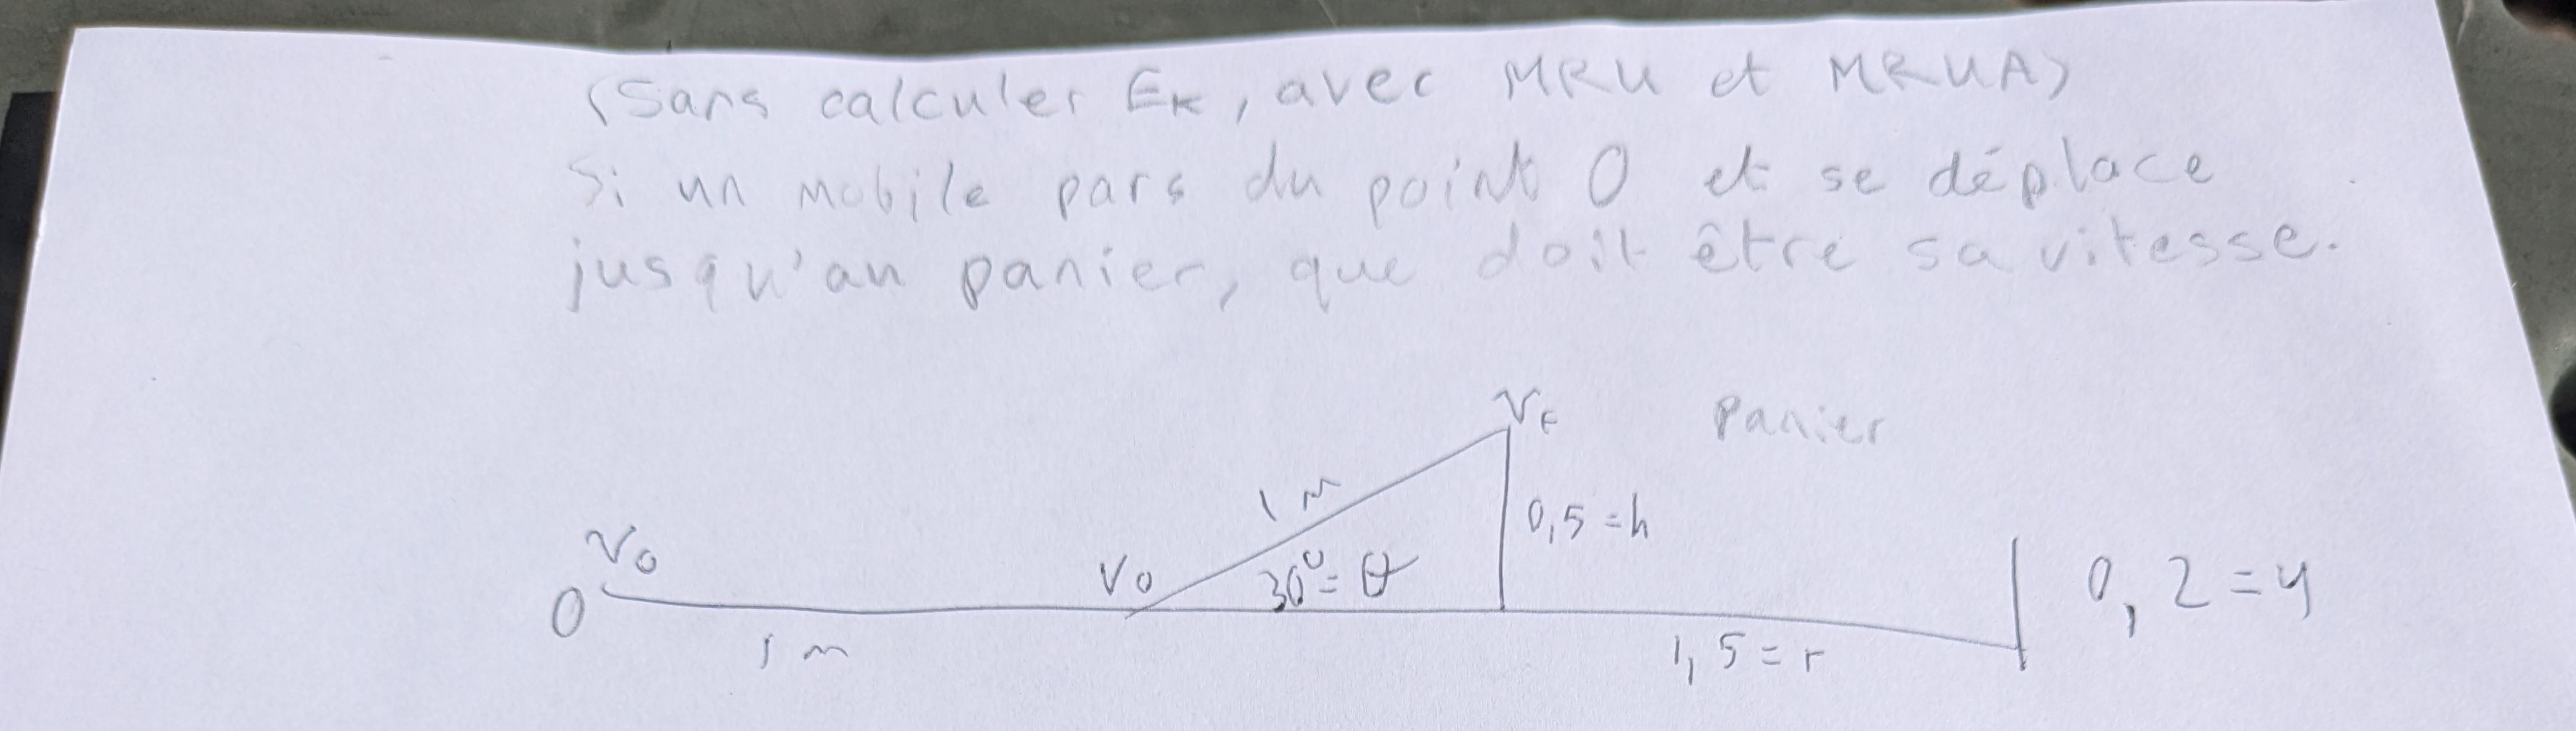 (Sans calculer Eк, avec MRU et MRUA)
Si un mobile pars du point O et se déplace
jusqu'au panier, que doit être sa vitesse.
VF Panier
1 m
0,5 = h
V0 V0 30° = θ 0,2 = y
O
1 m 1,5 = r